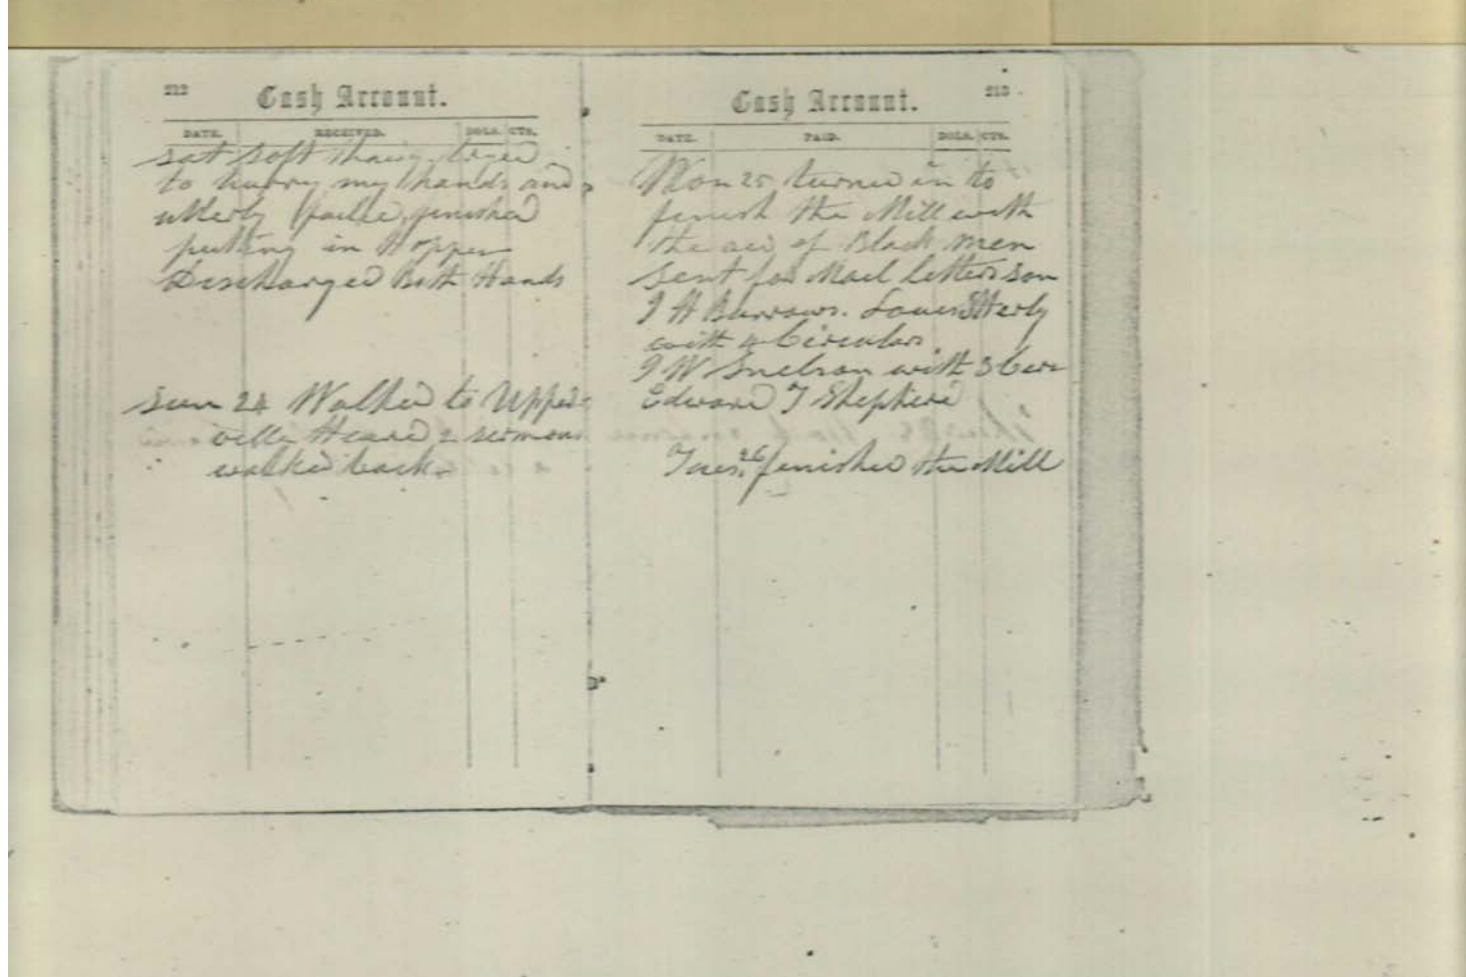 212
Cash Account.
DATE. RECEIVED. DOLS. CTS.
sat soft thawy tryed
to hurry my hands and
utterly failed finished
putting in Hopper
Discharged Both Hands
sun 24 Walked to Upper
ville Heard 2 sermons
walked back
Cash Account.
213
DATE. PAID. DOLS. CTS.
Mon 25 turned in to
finish the Mill with
the aid of Black men
sent for Mail letters
J H Burrows.
with 4 Circulars.
J W Snelson with 3
Edward T Shepherd
Tues. 26 finished the Mill